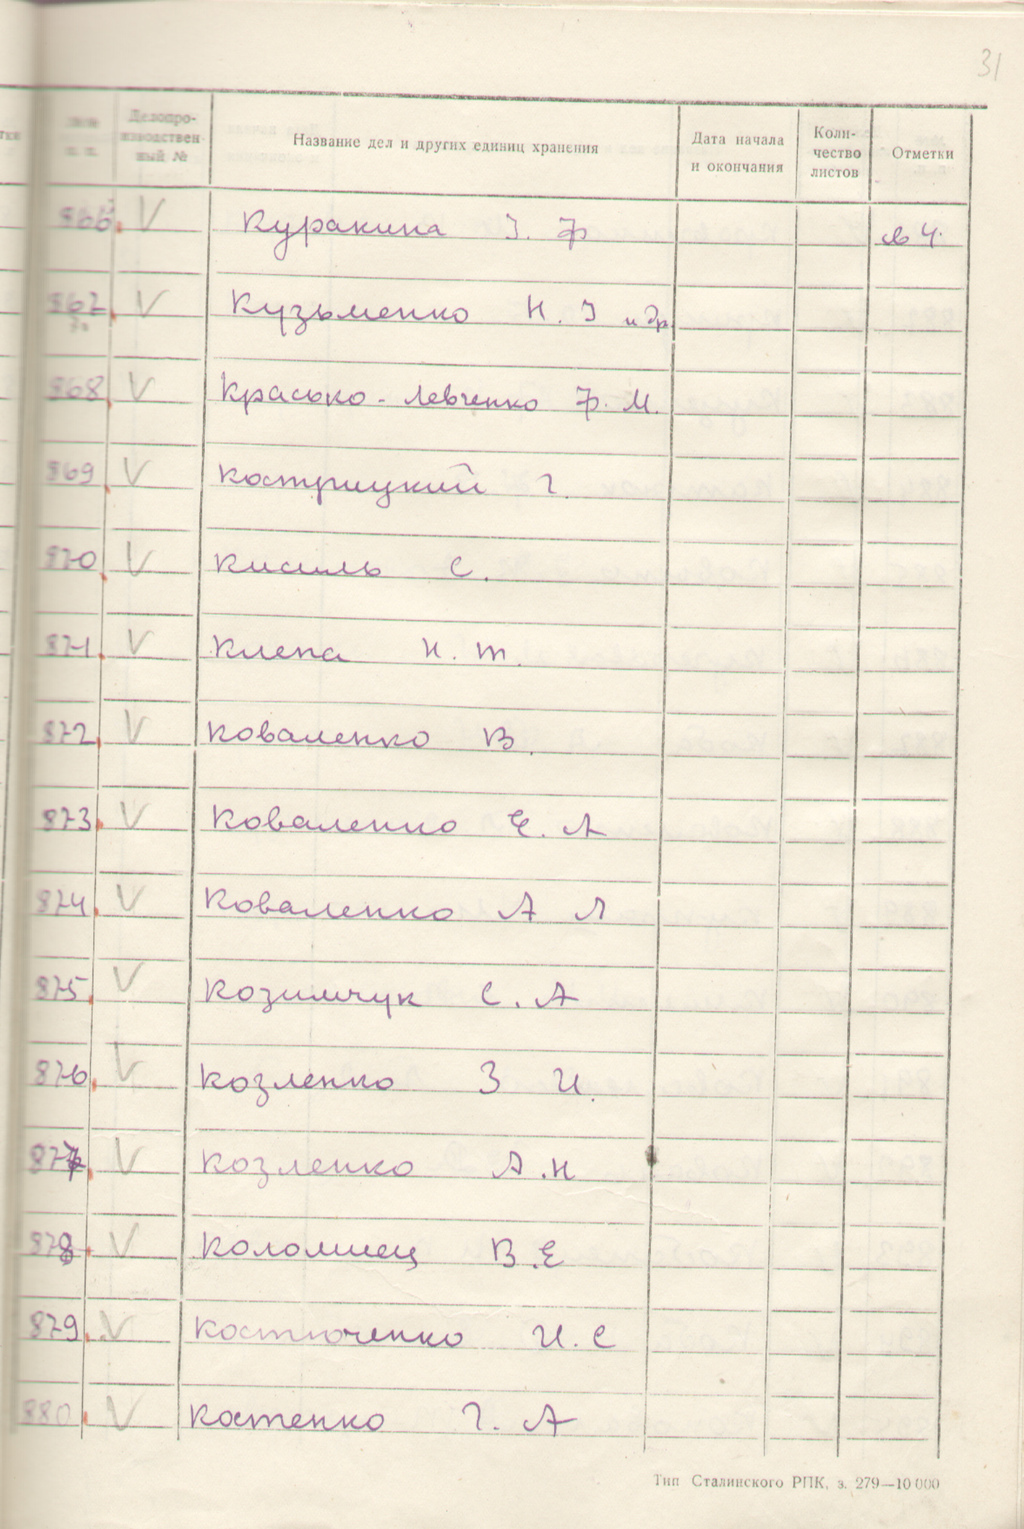 31
Делопро-
изводствен-
ный №
Название дел и других единиц хранения
Дата начала
и окончания
Коли-
чество
листов
Отметки
866. V Куракина З. Ф в 4.
867. V Кузьменко Н. З и др.
868. V Красько-Левченко Ф. М.
869. V Кострицкий Г.
870. V Кисиль С.
871. V Клепа Н. Т.
872. V Коваленко В.
873. V Коваленко Е. А
874. V Коваленко А Л
875. V Козимчук С. А
876. V Козленко З И.
877. V Козленко А. Н
878. V Коломиец В. Е
879. V Костюченко И. С
880. V Костенко Г. А
Тип Сталинского РПК, з. 279—10 000